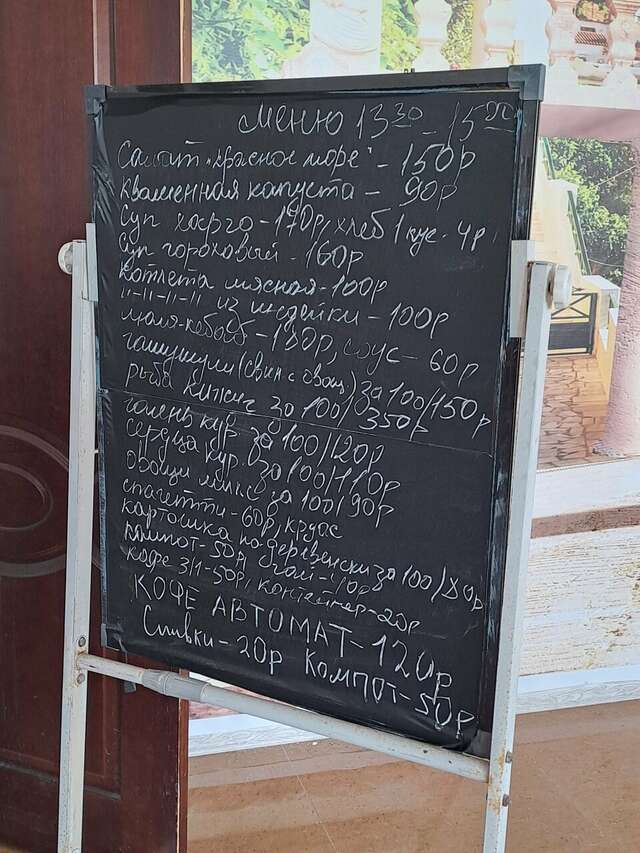 Меню 13 30 - 15 00
Салат "красное море" - 150р
квашенная капуста - 90р
Суп харчо - 170р, хлеб 1 кус - 4р
Суп гороховый - 160р
котлета мясная - 100р
11-11-11-11 из индейки - 100р
люля-кебаб - 130р, соус - 60р
(свин с овощ) за 100/150р
рыба кижуч за 100/350р
голень кур. за 100/120р
сердца кур. за 100/110р
овощи микс за 100/90р
спагетти - 60р, круас
картошка по деревенски за 100/80р
компот - 50р чай - 40р
кофе 3/1 - 50р, контейнер - 20р
КОФЕ АВТОМАТ - 120р
Сливки - 20р Компот - 50р